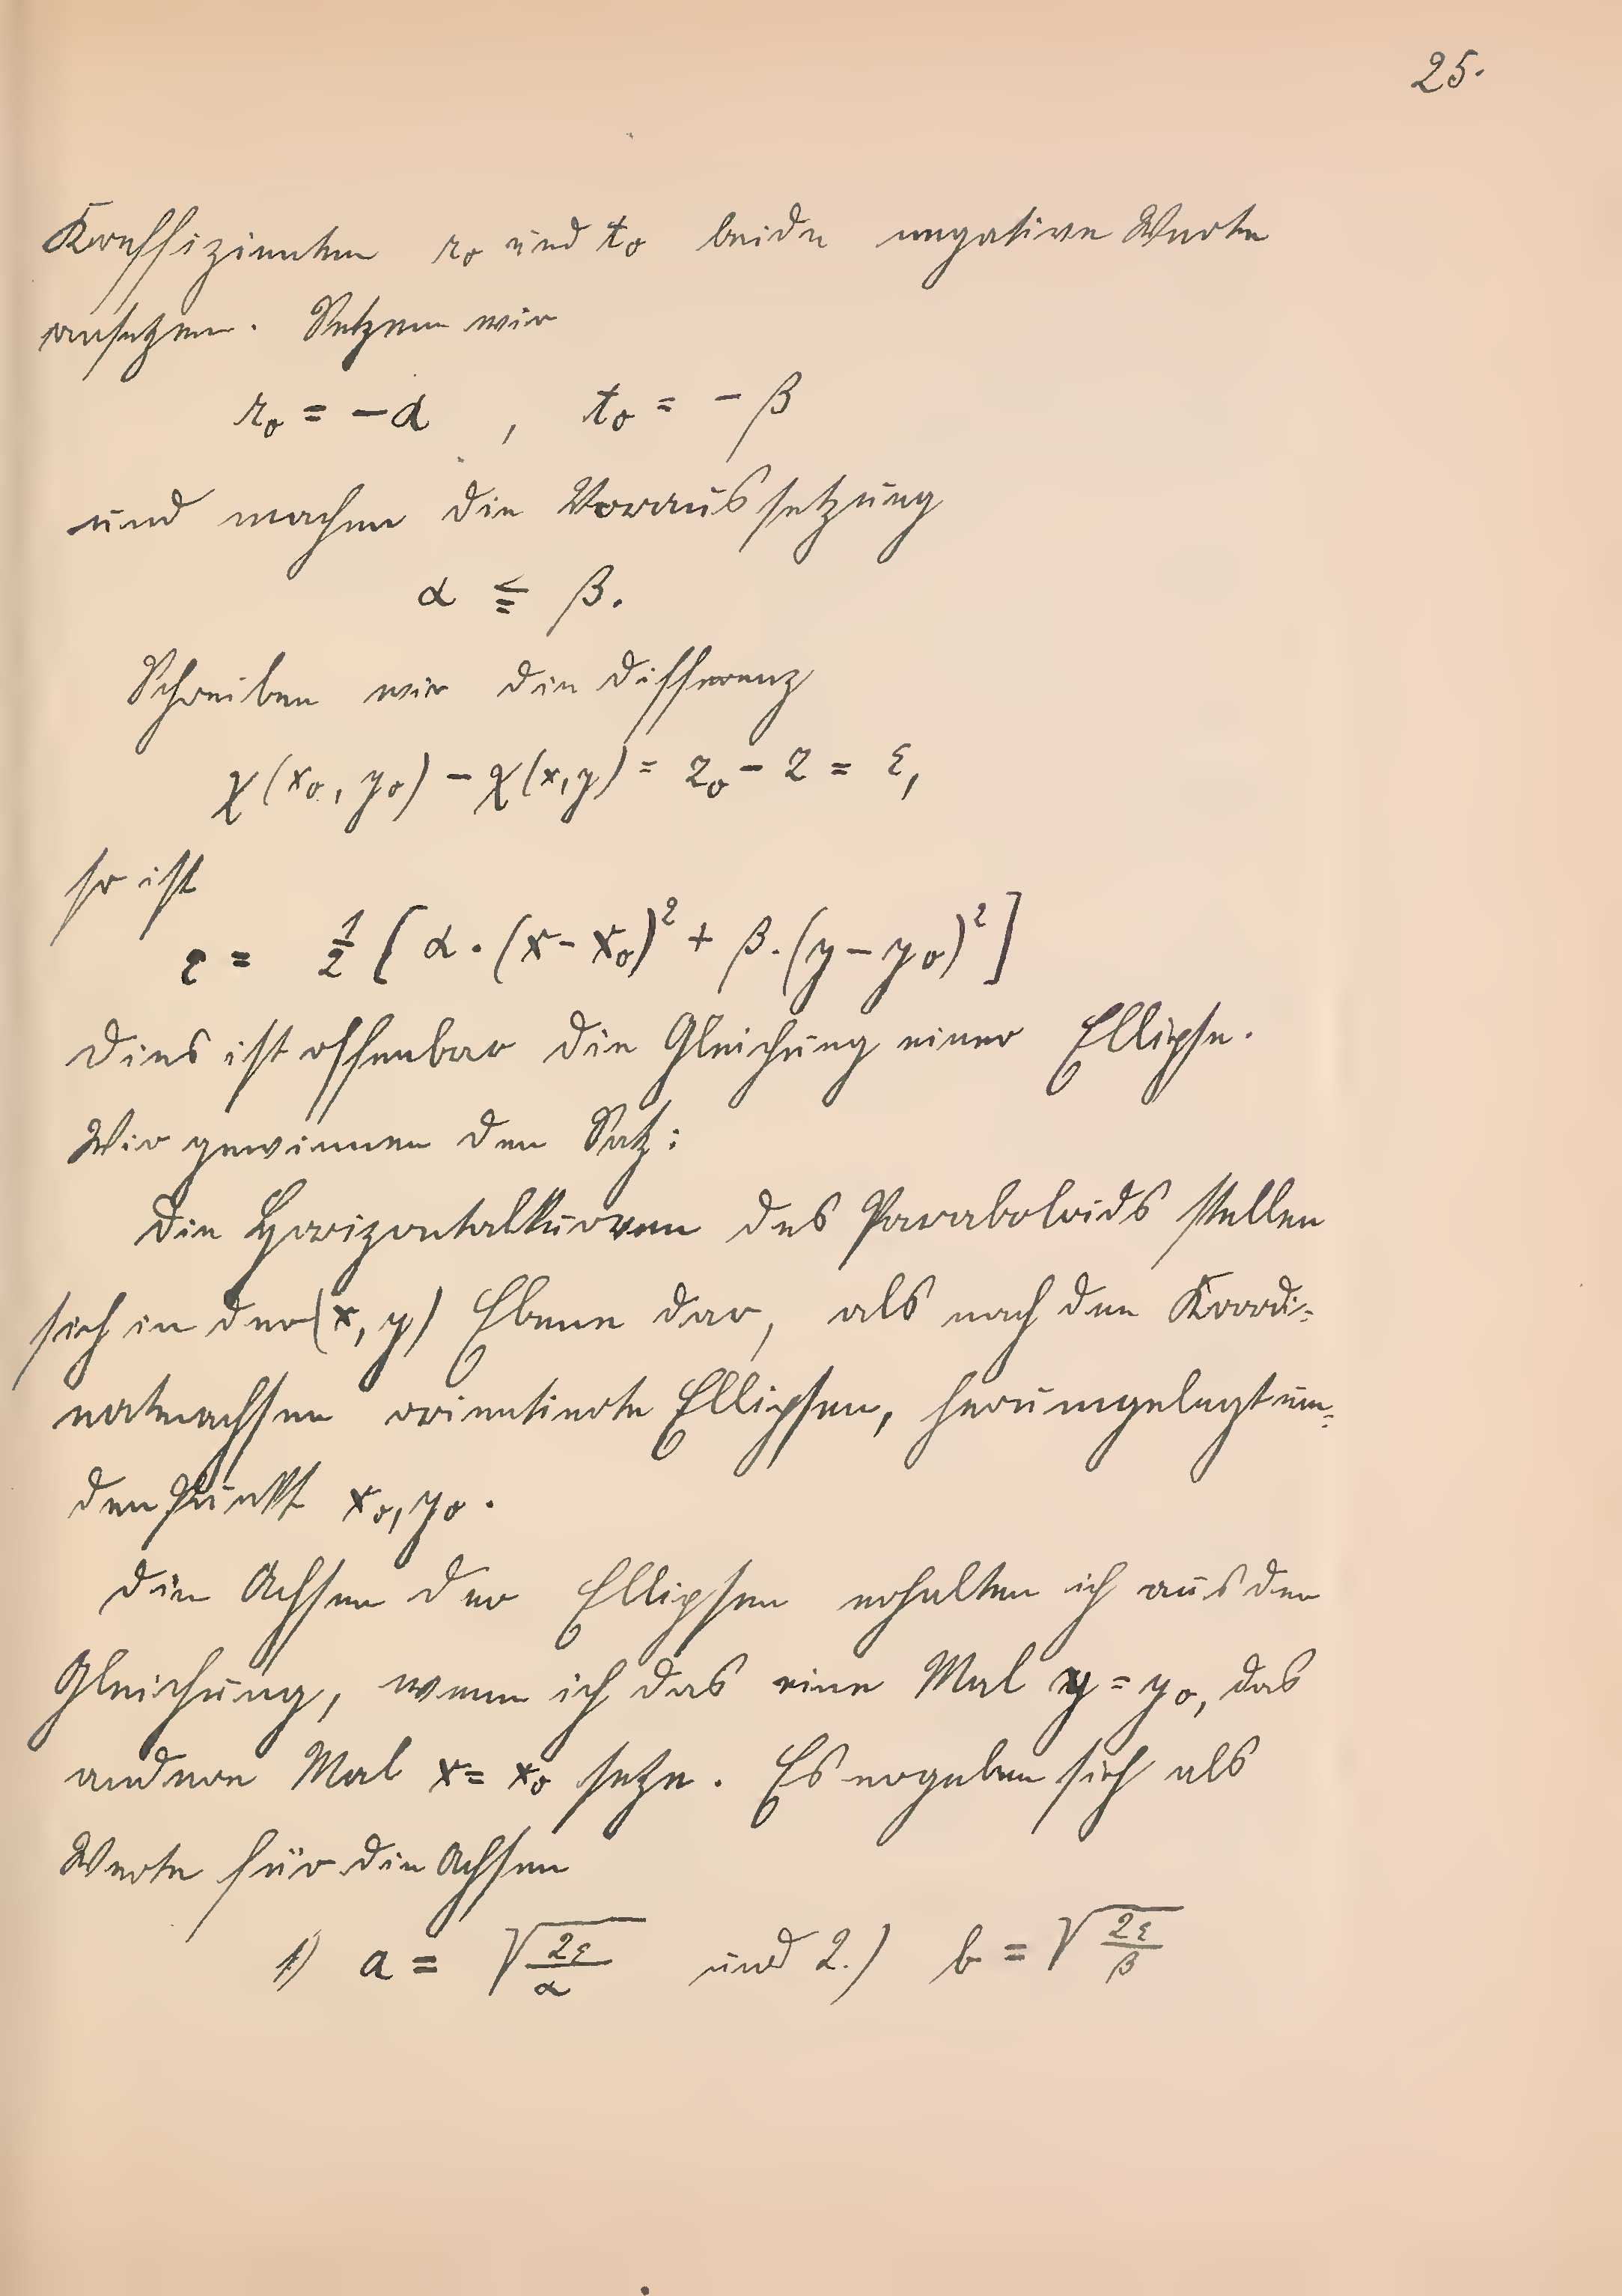 25.
Koeffizienten r₀ und t₀ beide negative Werte
ansetzen. Setzen wir
r₀ = – α , t₀ = – β
und machen die Voraussetzung
α ≦ β.
Schreiben wir die Differenz
χ(x₀, y₀) – χ(x, y) = z₀ – z = ε,
so ist
ε = 1/2 [α · (x – x₀)² + β · (y – y₀)²]
Dies ist offenbar die Gleichung einer Ellipse.
Wir gewinnen den Satz:
Die Horizontalkurven des Paraboloids stellen
sich in der (x, y) Ebene dar, als nach den Koordi=
natenachsen orientierte Ellipsen, herumgelegt um=
den Punkt x₀, y₀.
Die Achsen der Ellipsen erhalten ich aus der
Gleichung, wenn ich das eine Mal y = y₀, das
andere Mal x = x₀ setze. Es ergeben sich als
Werte für die Achsen
1) a = √(2ε/α) und 2.) b = √(2ε/β)